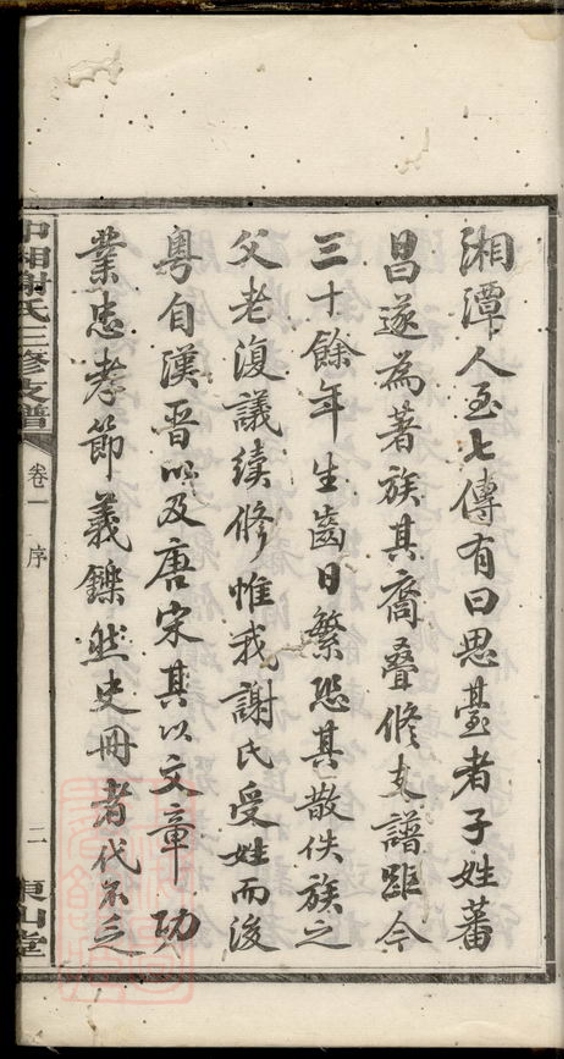 湘潭人至七傳有曰思臺者子姓蕃
昌遂為著族其裔叠修支譜距今
三十餘年生齒日繁恐其散佚族之
父老復議續修惟我謝氏受姓而後
粤自漢晋以及唐宋其以文章功
業忠孝節義鑠然史冊者代不乏
中湘謝氏三修支譜
卷一
序
二
東山堂